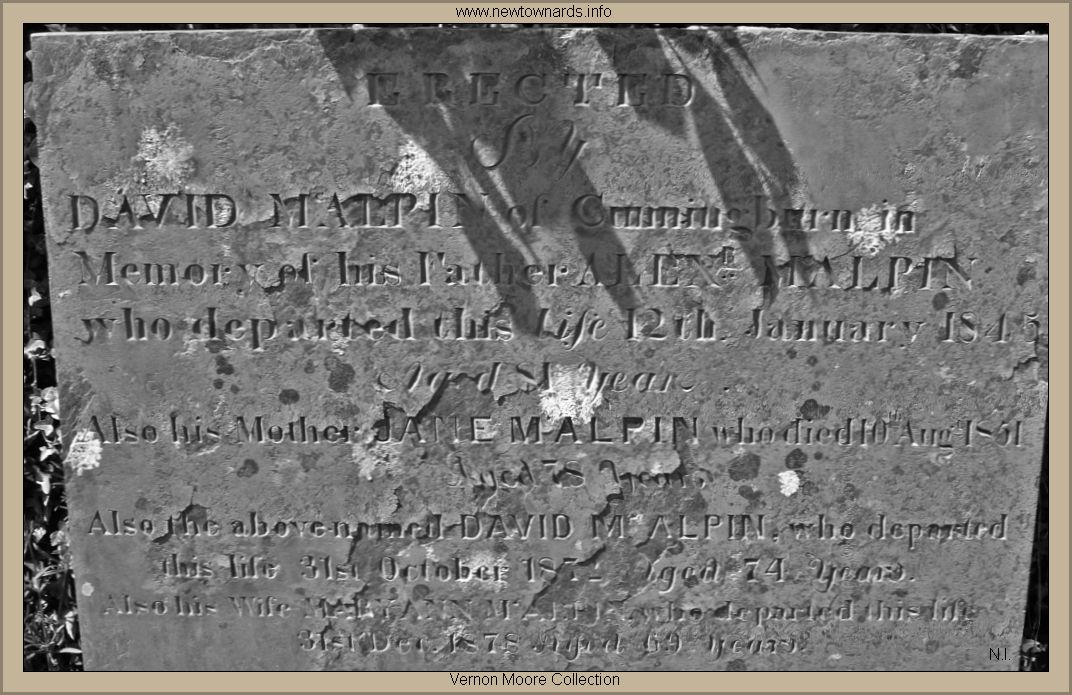 www.newtownards.info
ERECTED
By
DAVID McALPIN of Cunningburn in
Memory of his Father ALEXR McALPIN
who departed this Life 12th January 1845
Aged Years
Also his Mother JANE McALPIN who died 10th Augt 1851
Aged 78 Years
Also the above-named DAVID McALPIN, who departed
this life 31st October Aged 74 Years.
Also his Wife MARYANN McALPIN, who departed this life
31st Dec. 1878 Aged 69 Years.
N.I.
Vernon Moore Collection